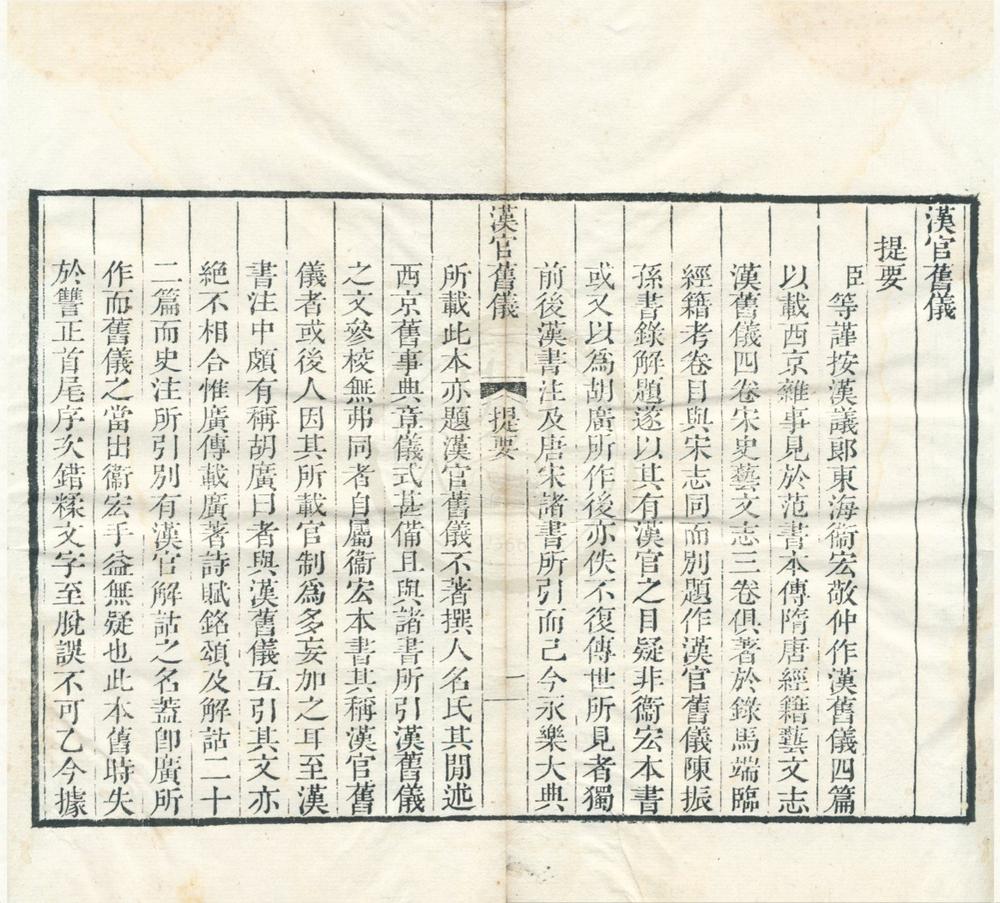 漢官舊儀
提要
臣等謹按漢議郎東海衞宏敬仲作漢舊儀四篇
以載西京雜事見於范書本傳隋唐經籍藝文志
漢舊儀四卷宋史藝文志三卷俱著於錄馬端臨
經籍考卷目與宋志同而別題作漢官舊儀陳振
孫書錄解題遂以其有漢官之目疑非衞宏本書
或又以爲胡廣所作後亦佚不復傳世所見者獨
前後漢書注及唐宋諸書所引而已今永樂大典
漢官舊儀
提要
一
所載此本亦題漢官舊儀不著撰人名氏其閒述
西京舊事典章儀式甚備且與諸書所引漢舊儀
之文參校無弗同者自屬衞宏本書其稱漢官舊
儀者或後人因其所載官制爲多妄加之耳至漢
書注中頗有稱胡廣曰者與漢舊儀互引其文亦
絶不相合惟廣傳載廣著詩賦銘頌及解詁二十
二篇而史注所引別有漢官解詁之名蓋卽廣所
作而舊儀之當出衞宏手益無疑也此本舊時失
於讐正首尾序次錯糅文字至脫誤不可乙今據